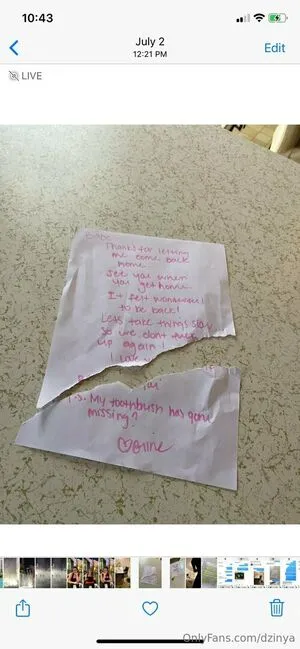 10:43
July 2
12:21 PM
Edit
LIVE
Babe
Thanks for letting
me come back
home.
See you when
you get home.
It felt wonderful
to be back!
Lets take things slow
so we don't fuck
up again!
I love
P.S. My toothbrush has gone
missing?
OnlyFans.com/dzinya